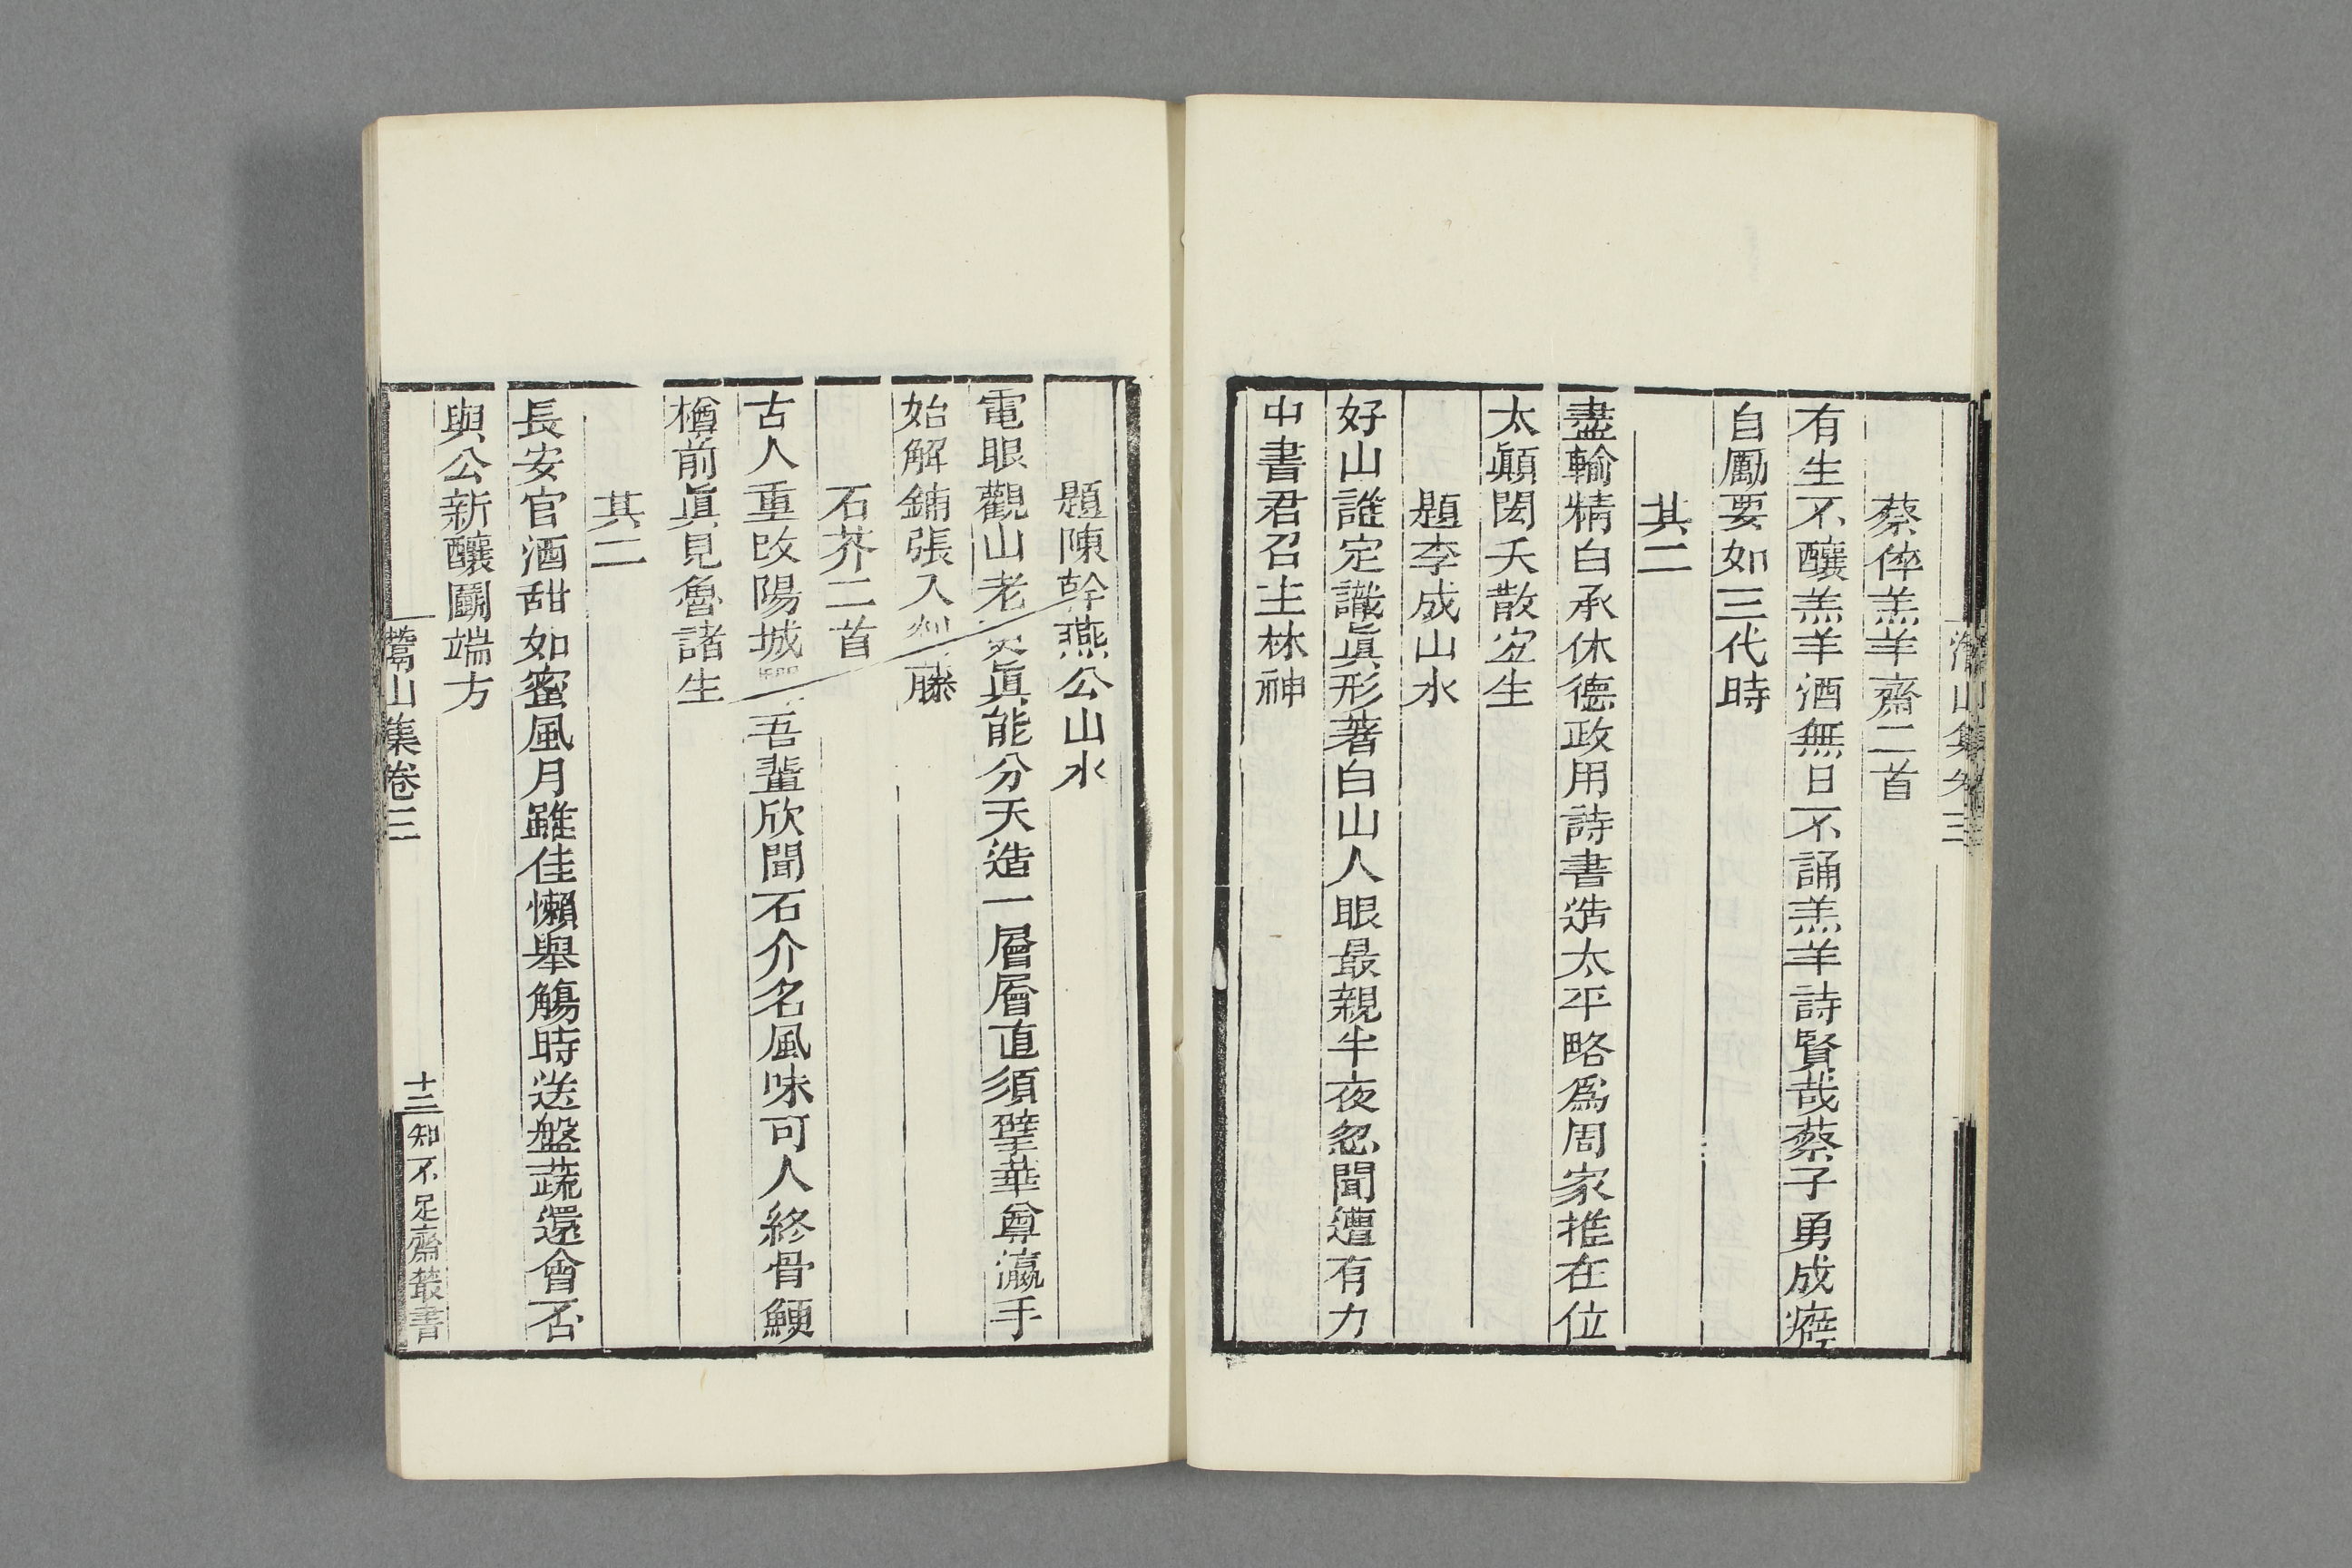 蔡倅羔羊齋二首
有生不釀羔羊酒無日不誦羔羊詩賢哉蔡子勇成癖
自勵要如三代時
其二
盡輸精白承休德政用詩書造太平略爲周家推在位
太顚閎夭散宜生
題李成山水
好山誰定識眞形著白山人眼最親半夜忽聞遭有力
中書君召主林神
題陳幹燕公山水
電眼觀山老 眞能分天造一層層直須擘華尊瀛手
始解鋪張入剡藤
石芥二首
古人重改陽城 吾輩欣聞石介名風味可人終骨鯁
樽前眞見魯諸生
其二
長安官酒甜如蜜風月雖佳懶舉觴時送盤蔬還會否
與公新釀鬭端方
山集卷三
十三
知不足齋叢書